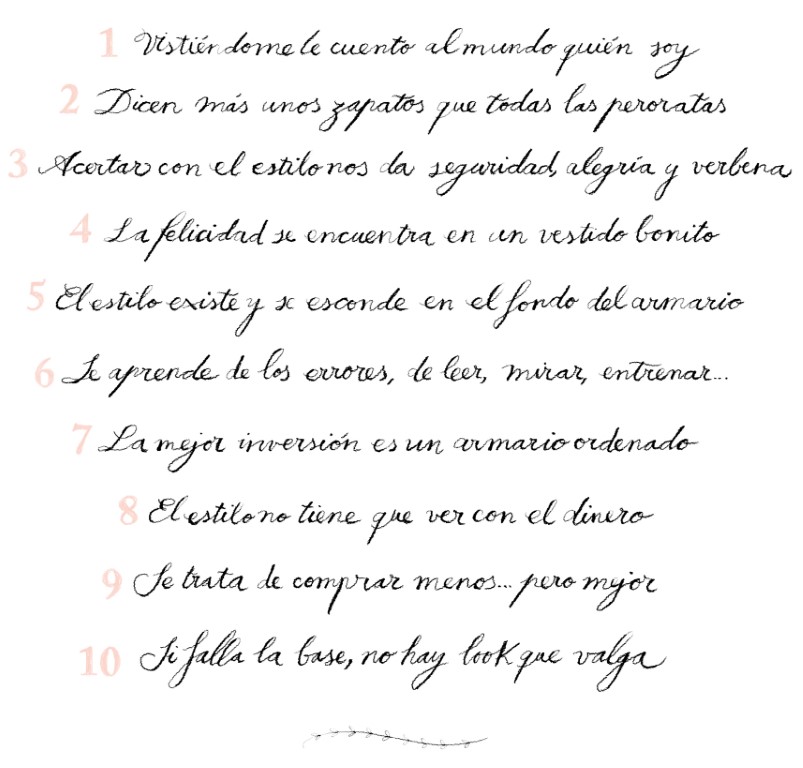 1 Vistiéndome le cuento al mundo quién soy
2 Dicen más unos zapatos que todas las peroratas
3 Acertar con el estilo nos da seguridad, alegría y verbena
4 La felicidad se encuentra en un vestido bonito
5 El estilo existe y se esconde en el fondo del armario
6 Se aprende de los errores, de leer, mirar, entrenar...
7 La mejor inversión es un armario ordenado
8 El estilo no tiene que ver con el dinero
9 Se trata de comprar menos... pero mejor
10 Si falla la base, no hay look que valga